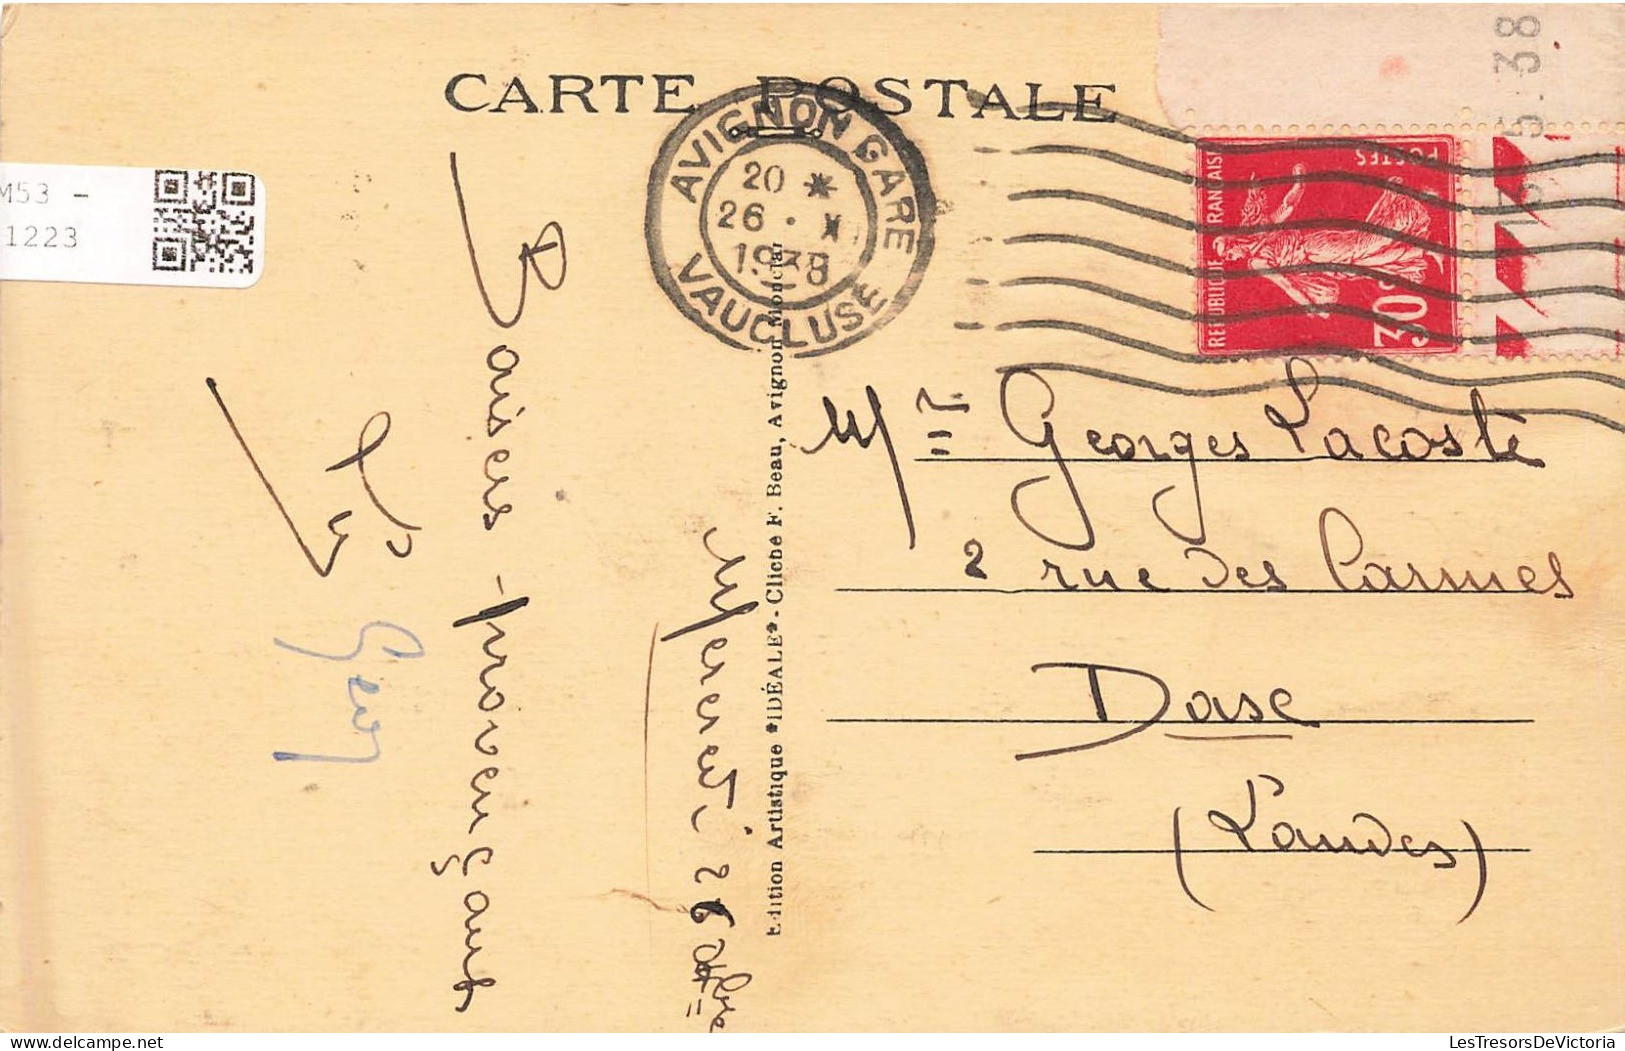 CARTE POSTALE
5. 38
13
M53 -
1223
AVIGNON GARE
20 *
26 . X
1938
VAUCLUSE
REPUBLIQUE FRANÇAISE
POSTES
30c
Baisers provençaux
Geo
Mercredi 26 8bre
Edition Artistique "IDÉALE" - Cliché F. Beau, Avignon Monclar
Mr Georges Lacoste
2 rue des Carmes
Dax
(Landes)
LesTresorsDeVictoria